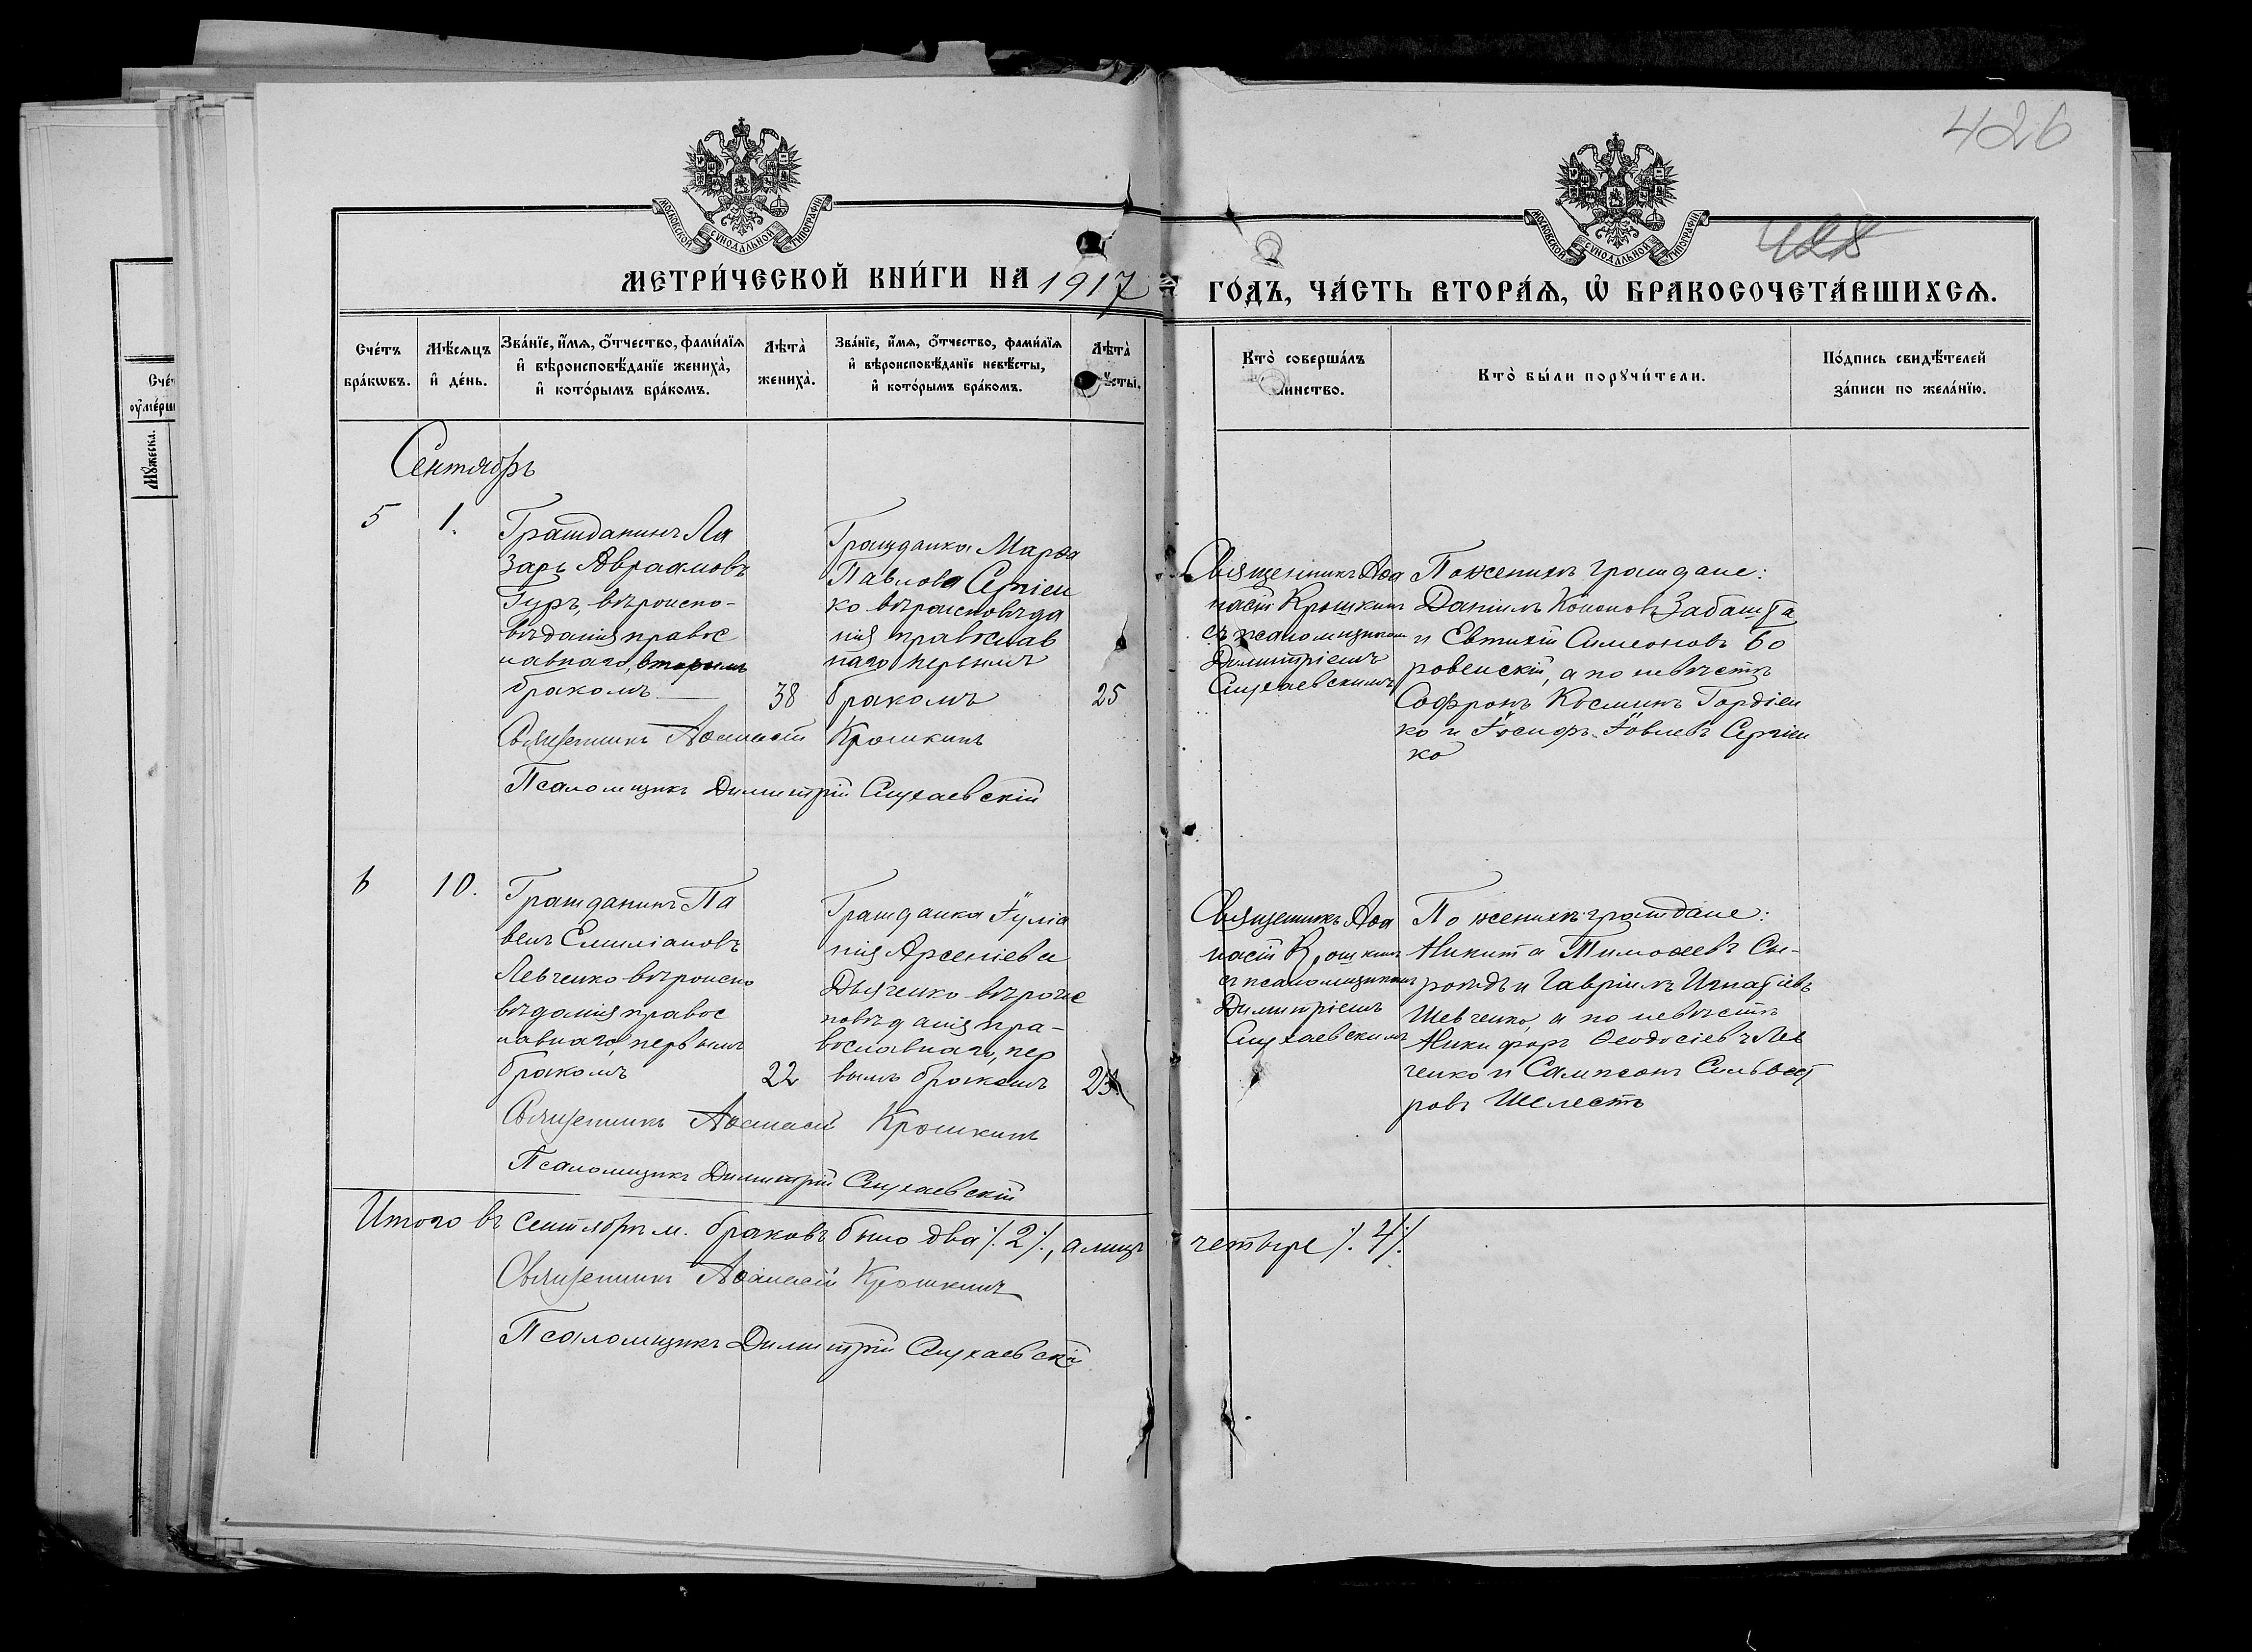 426
428
МОСКОВСКОЙ СѴНОДАЛЬНОЙ ТИПОГРАФІИ
МОСКОВСКОЙ СѴНОДАЛЬНОЙ ТИПОГРАФІИ
МЕТРИ́ЧЕСКОЙ КНИ́ГИ НА 1917
ГО́ДЪ, ЧА́СТЬ ВТОРА́Ѧ, Ѡ҆ БРАКОСОЧЕТА́ВШИХСѦ.
Сче́тъ
бра́кѡвъ.
Мѣ́сѧцъ
и҆ де́нь.
Зва́нїе, и҆́мѧ, ѻ҆́тчество, фами́лїѧ
и҆ вѣроисповѣ́данїе жениха̀,
и҆ кото́рымъ бра́комъ.
Лѣта̀
жениха̀.
Зва́нїе, и҆́мѧ, ѻ҆́тчество, фами́лїѧ
и҆ вѣроисповѣ́данїе невѣ́сты,
и҆ кото́рымъ бра́комъ.
Лѣта̀
Кто̀ соверша́лъ
Кто̀ бы́ли порꙋчи́тели.
По́дпись свидѣ́телей
за́писи по жела́нїю.
Мꙋ́жеска.
Сентябрь
5
1.
Гражданинъ Ла
зарь Авраамовъ
Гуръ, вѣроиспо-
вѣданія правос
лавнаго, вторымъ
бракомъ
38
Гражданка Марѳа
Павлова Сергіен
ко вѣроисповѣда
нія православ
наго первымъ
бракомъ
25
Священникъ Аѳа
насій Крошкинъ
съ псаломщикомъ
Димитріемъ
По женихѣ граждане:
Даніилъ Кононовъ Забашта
и Евтихій Симеоновъ Бо
ровенскій, а по невѣстѣ
Софронъ Косминъ Гордіен
ко и Іосифъ Іовлевъ Сергіен
ко
Священникъ Аѳанасій Крошкинъ
Псаломщикъ Димитрій
6
10.
Гражданинъ Па
велъ Емиліановъ
Левченко вѣроиспо
вѣданія правос
лавнаго, первымъ
бракомъ
22
Гражданка Іуліа
нія Арсеніева
Дьяченко вѣроис
повѣданія пра-
вославнаго, пер
вымъ бракомъ
Священникъ Аѳа
насій Крошкинъ
съ псаломщикомъ
Димитріемъ
По женихѣ граждане:
Никита Тимоѳеевъ Сы-
ропядъ и Гавріилъ Игнатіевъ
Шевченко, а по невѣстѣ
Никифоръ Ѳеодосіевъ Лев
ченко и Сампсонъ Сильвест
ровъ Шелестъ
Священникъ Аѳанасій Крошкинъ
Псаломщикъ Димитрій
Итого въ сентябрѣ м. браковъ было два /. 2 /., а лицъ четыре /. 4 /.
Священникъ Аѳанасій Крошкинъ
Псаломщикъ Димитрій